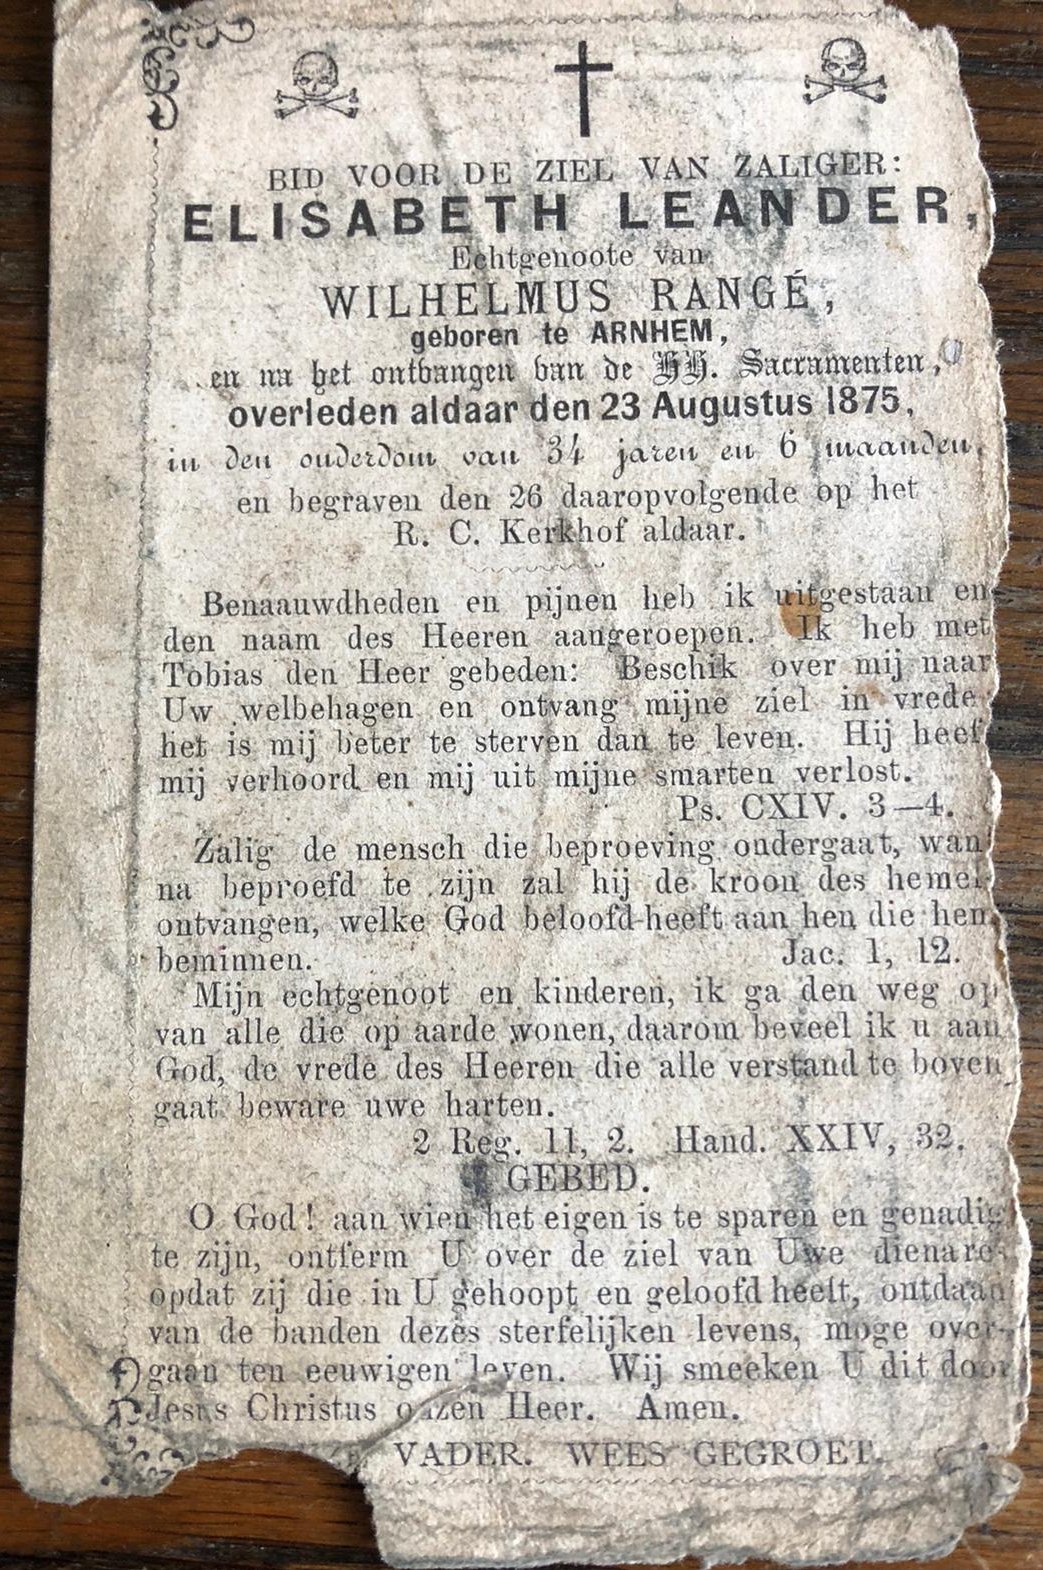 BID VOOR DE ZIEL VAN ZALIGER:
ELISABETH LEANDER,
Echtgenoote van
WILHELMUS RANGÉ,
geboren te ARNHEM,
en na het ontvangen van de HH. Sacramenten,
overleden aldaar den 23 Augustus 1875,
in den ouderdom van 34 jaren en 6 maanden,
en begraven den 26 daaropvolgende op het
R. C. Kerkhof aldaar.
Benaauwdheden en pijnen heb ik uitgestaan en
den naam des Heeren aangeroepen. Ik heb met
Tobias den Heer gebeden: Beschik over mij naar
Uw welbehagen en ontvang mijne ziel in vrede
het is mij beter te sterven dan te leven. Hij heef
mij verhoord en mij uit mijne smarten verlost.
Ps. CXIV. 3—4.
Zalig de mensch die beproeving ondergaat, wan
na beproefd te zijn zal hij de kroon des hemel
ontvangen, welke God beloofd heeft aan hen die hem
beminnen. Jac. 1, 12.
Mijn echtgenoot en kinderen, ik ga den weg op
van alle die op aarde wonen, daarom beveel ik u aan
God, de vrede des Heeren die alle verstand te boven
gaat beware uwe harten.
2 Reg. 11, 2. Hand. XXIV, 32.
GEBED.
O God! aan wien het eigen is te sparen en genadig
te zijn, ontferm U over de ziel van Uwe dienare
opdat zij die in U gehoopt en geloofd heeft, ontdaan
van de banden dezes sterfelijken levens, moge over-
gaan ten eeuwigen leven. Wij smeeken U dit door
Jesus Christus onzen Heer. Amen.
VADER. WEES GEGROET.